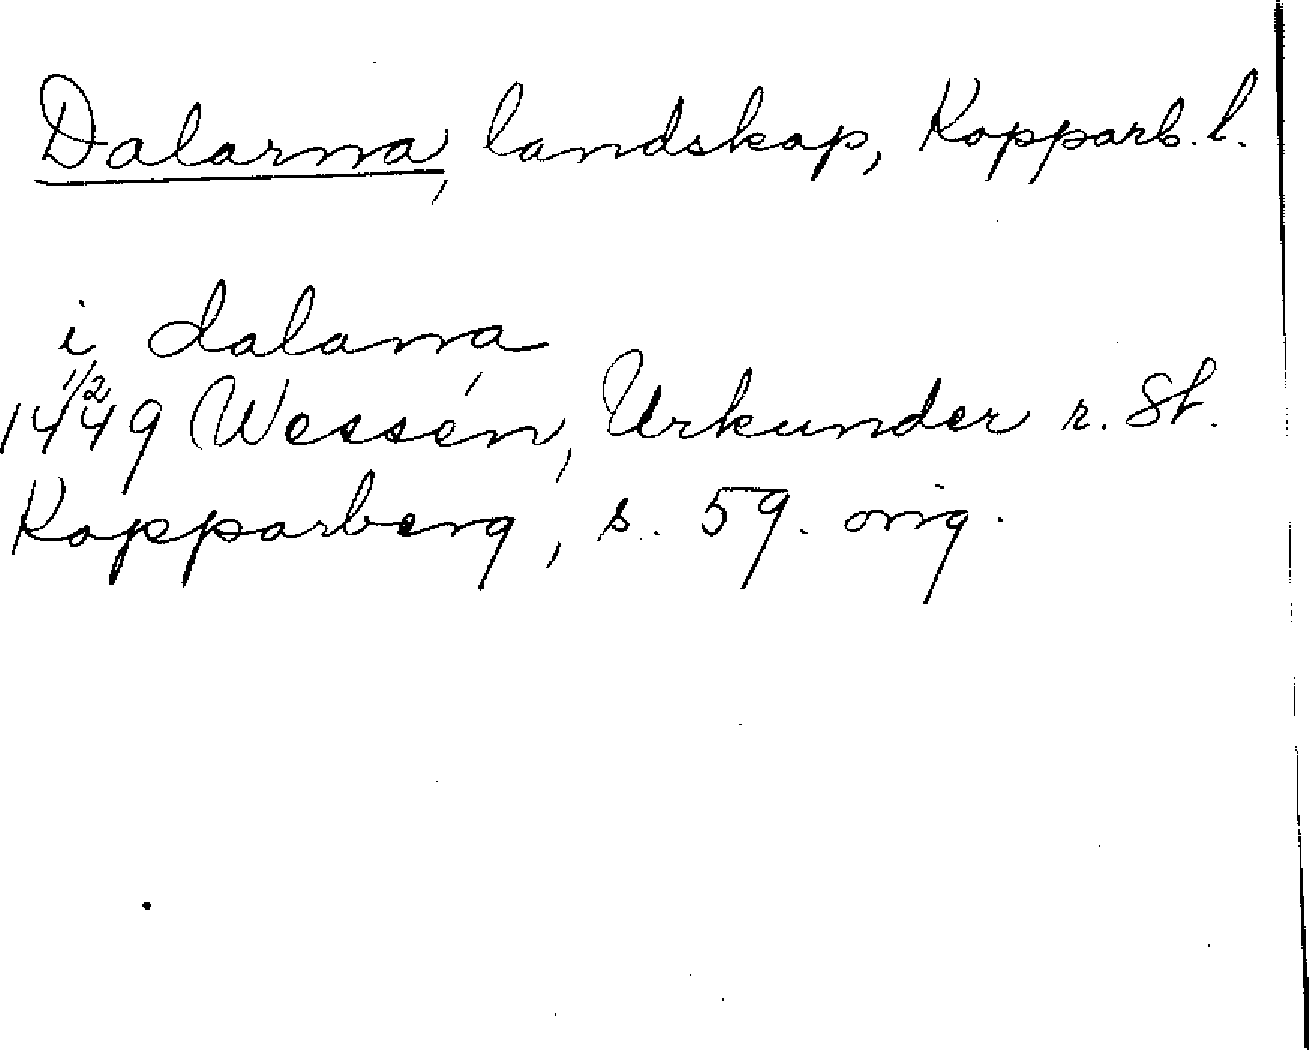 Dalarna, landskap, Kopparb. l.
i dalarna
1/2
1449 Wessén, Urkunder r. St.
Kopparberg, s. 59. orig.